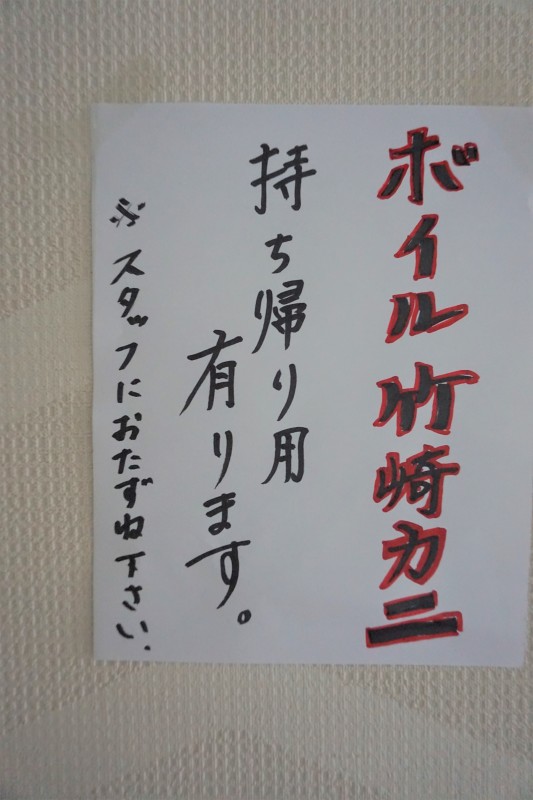 ボイル竹崎カニ
持ち帰り用
有ります。
※スタッフにおたずね下さい.